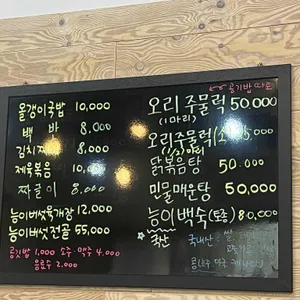 올갱이국밥 10,000
백반 8,000
김치찌개 8,000
제육볶음 10,000
짜글이 8,000
능이버섯육개장 12,000
능이버섯전골 55,000
공기밥 1,000 소주·맥주 4,000
음료수 2,000
공기밥 따로
오리주물럭 50,000
(1마리)
오리주물럭
닭볶음탕 50,000
민물매운탕 50,000
능이백숙(토종) 80,000
국내산